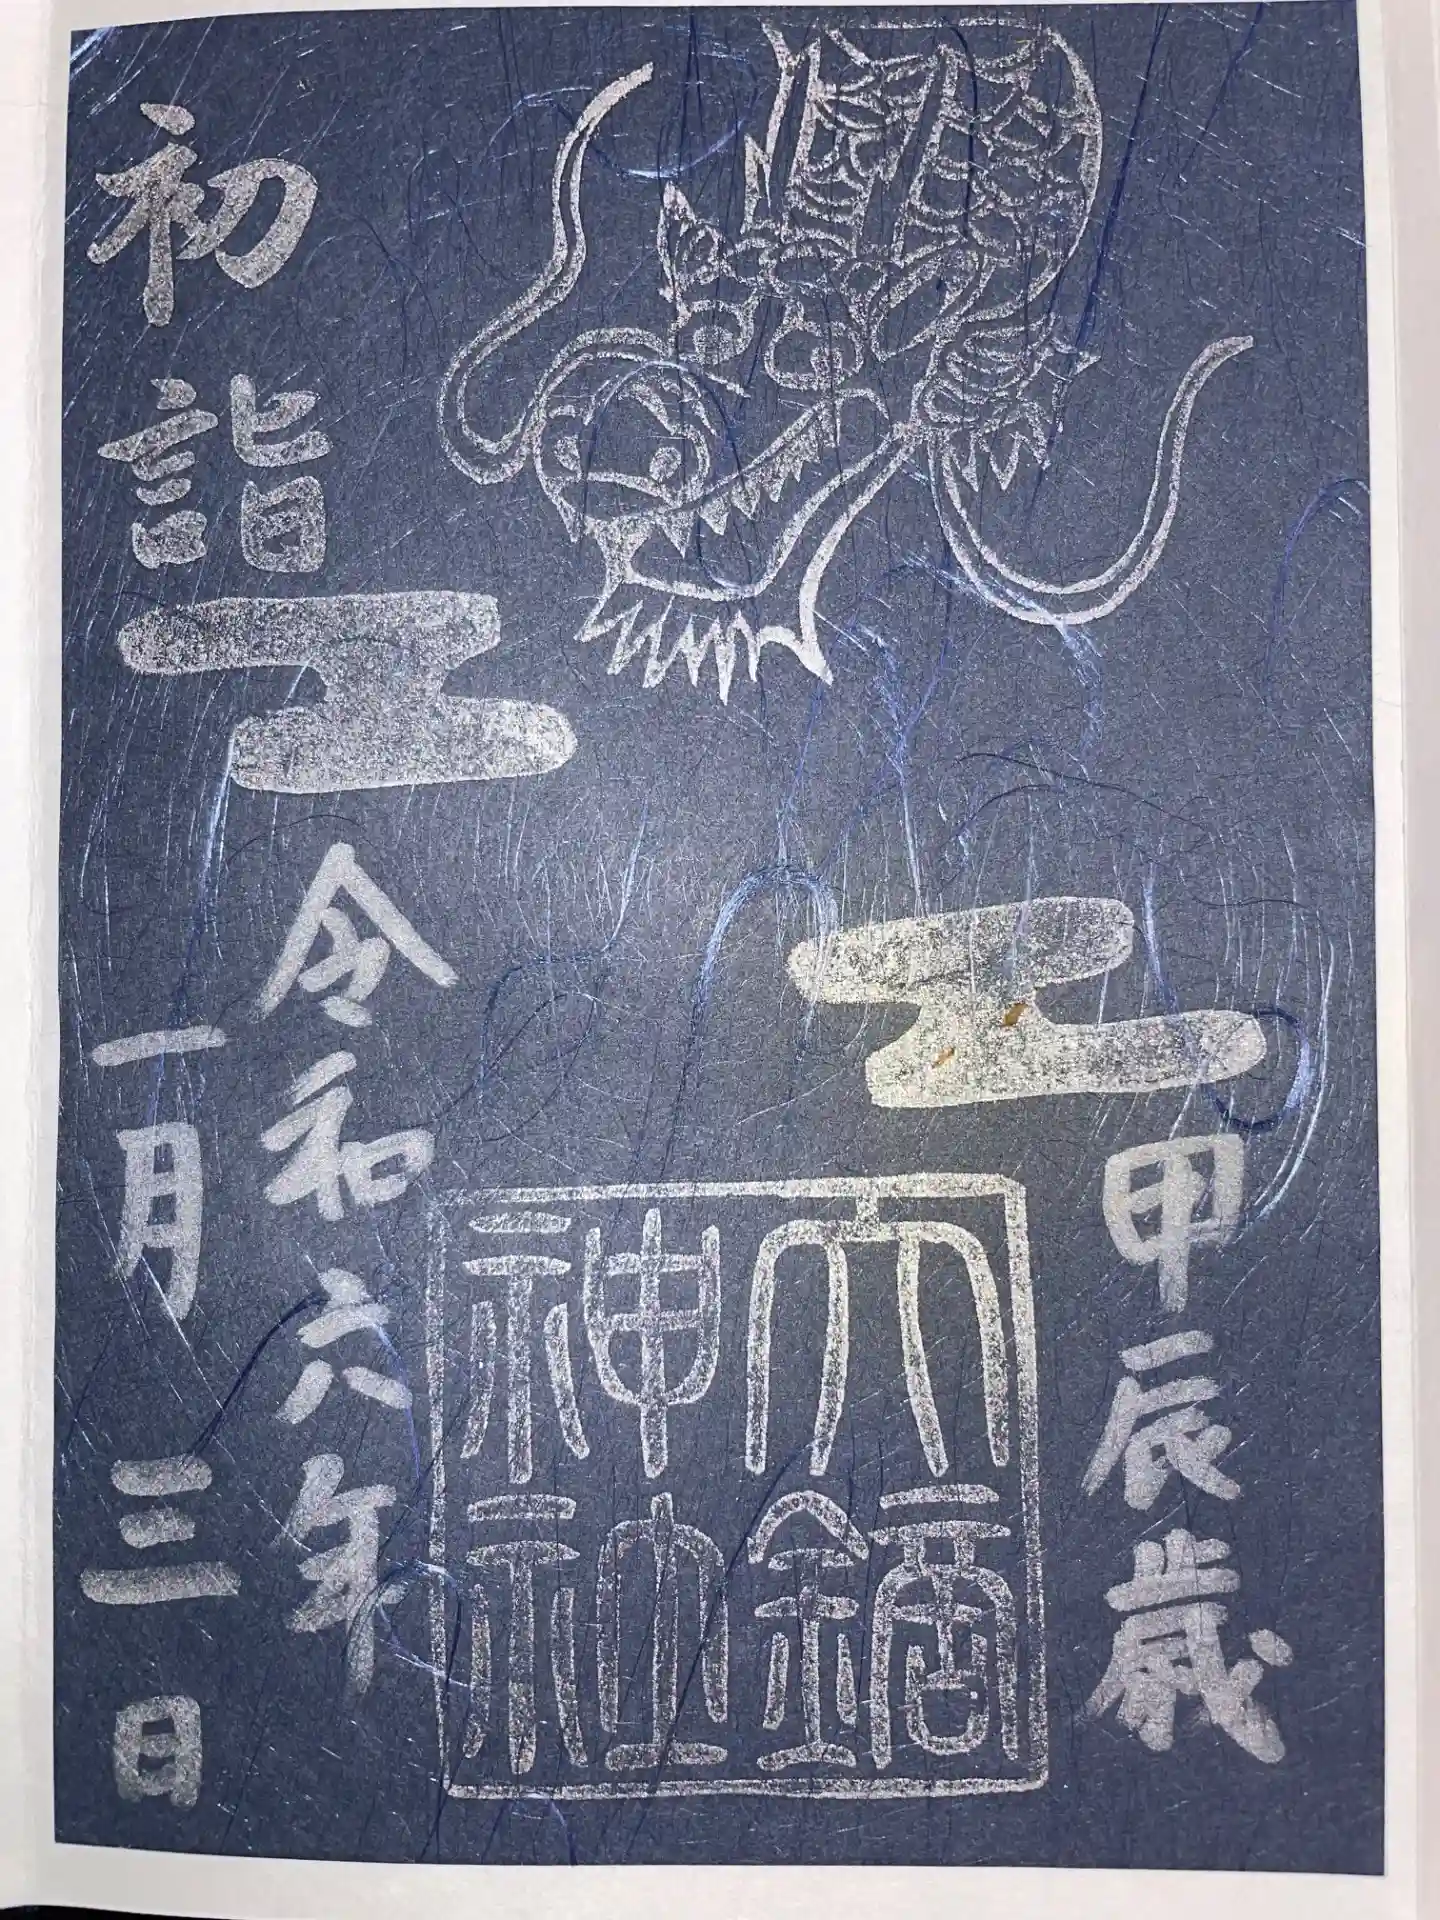 甲辰歳
大鏑
神社
初詣
令和六年
一月三日